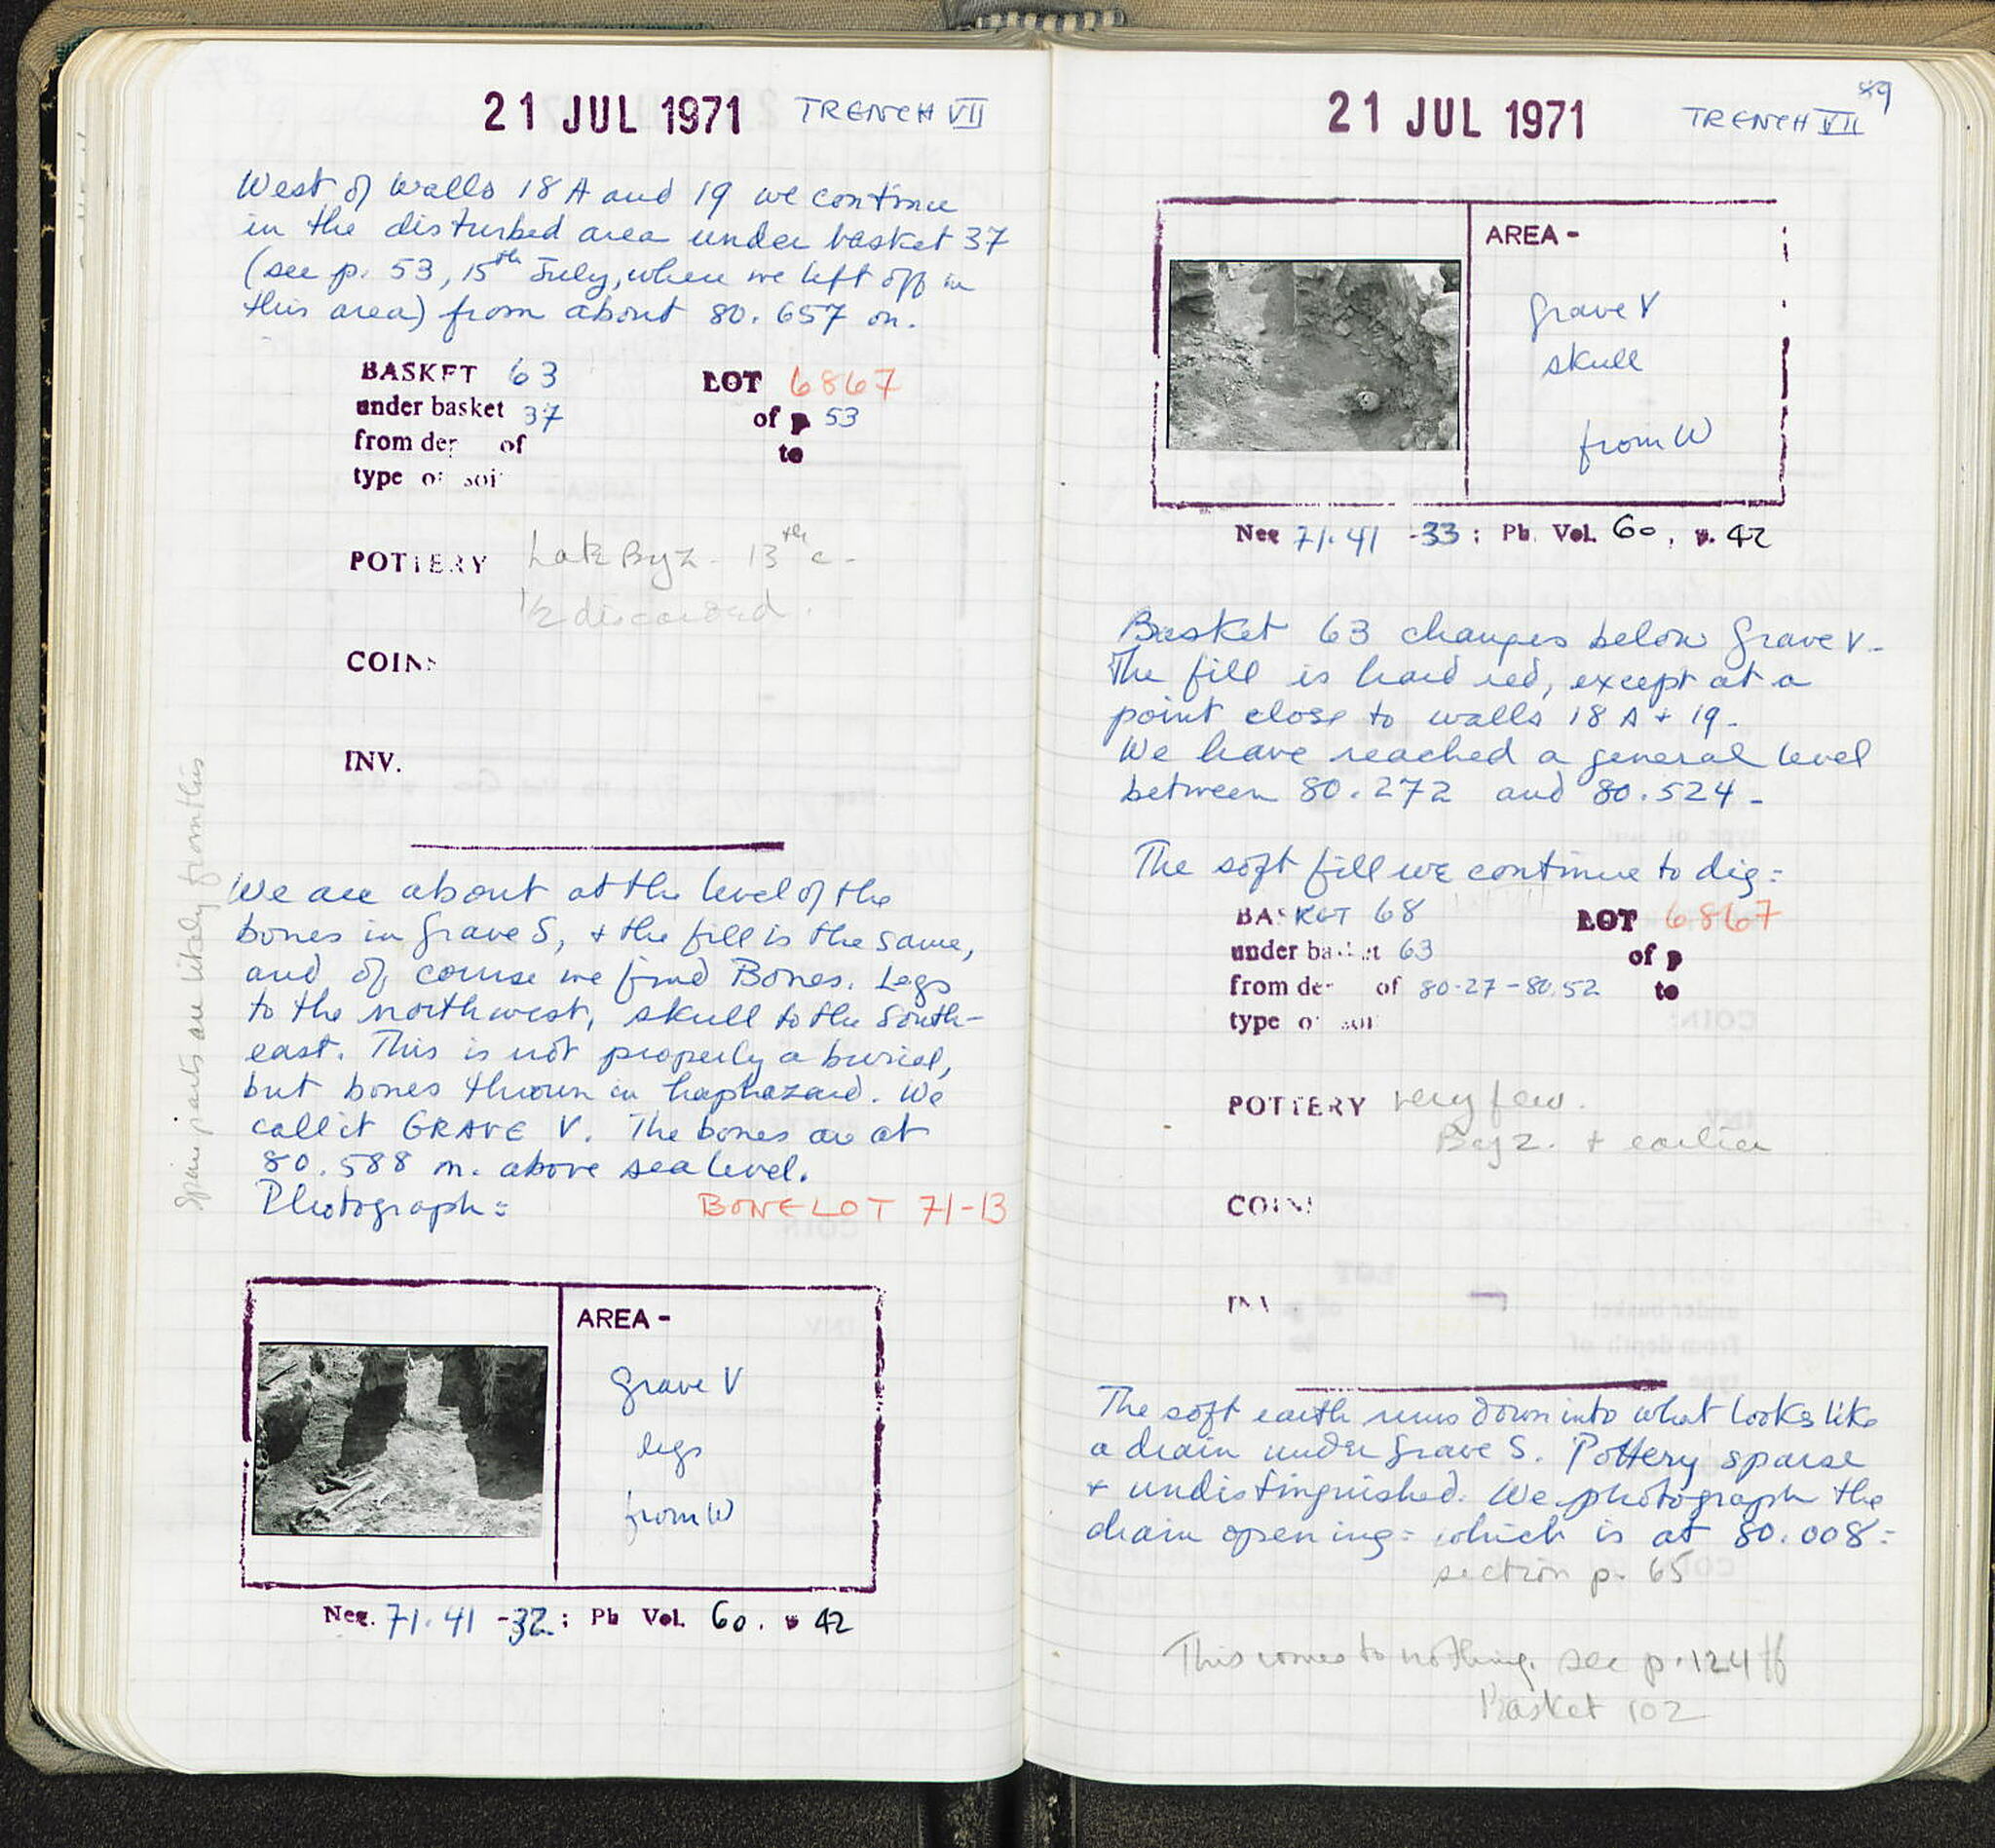 21 JUL 1971 TRENCH VII
West of walls 18 A and 19 we continue
in the disturbed area under basket 37
(see p. 53, 15th July, where we left off in
this area) from about 80.657 on.
BASKET 63 LOT 6867
under basket 37 of p 53
from dep of to
type of soil
POTTERY Late Byz - 13th c.
1/2 discarded.
COINS
INV.
We are about at the level of the
bones in Grave S, + the fill is the same,
and of course we find Bones. Legs
to the northwest, skull to the South-
east. This is not properly a burial,
but bones thrown in haphazard. We
call it GRAVE V. The bones are at
80.588 m. above sea level.
Photograph= BONE LOT 71-13
AREA -
Grave V
legs
from W
Neg. 71.41 -32; Ph Vol. 60. p 42
parts are from this
21 JUL 1971 TRENCH VII 89
AREA -
Grave V
skull
from W
Neg 71.41 -33; Ph. Vol. 60, p. 42
Basket 63 changes below Grave V -
The fill is hard red, except at a
point close to walls 18 A + 19 -
We have reached a general level
between 80.272 and 80.524 -
The soft fill we continue to dig=
BASKET 68 LOT 6867
under basket 63 of p
from dep of 80.27 - 80.52 to
type of soil
POTTERY very few.
Byz. + earlier
COINS
INV.
The soft earth runs down into what looks like
a drain under Grave S. Pottery sparse
+ undistinguished. We photograph the
drain opening= which is at 80.008=
section p. 65
This comes to nothing. see p. 124 ff
Basket 102